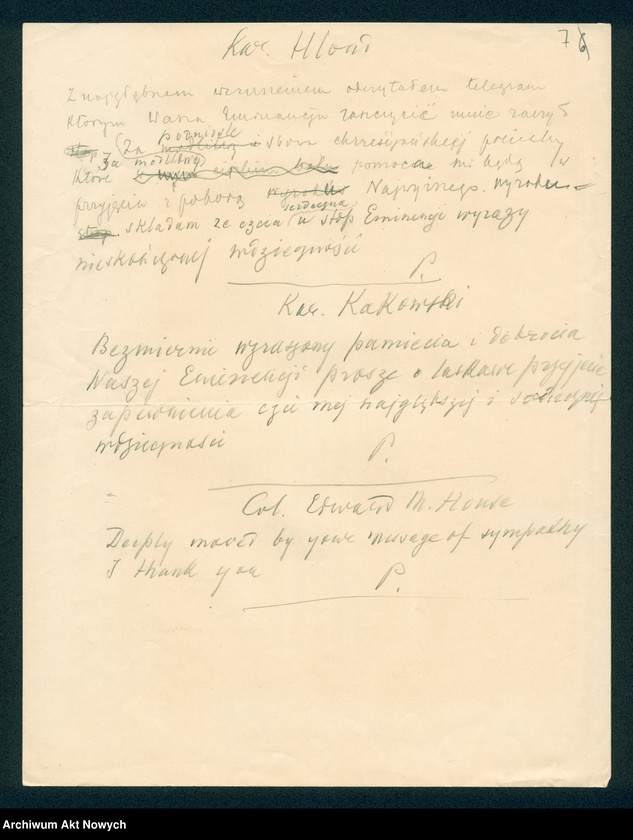 76
Kar. Hlond
Z najgłębszem wzruszeniem odczytałem telegram
którym Wasza Eminencja zaszczycić mnie raczył
podniosłe
stop. Za (Za modlitwy i słowa chrześcijańskiej pociechy
modlitwy)
które pomocą mi będą w
przyjęciu z pokorą Najwyższego. wyroku
serdeczną
składam ze czcią u stóp Eminencji wyrazy
nieskończonej wdzięczność
P.
Kar. Kakowski
Bezmiernie wzruszony pamięcia i dobrocia
Waszej Eminencji prosze o łaskawe przyjęcie
zapewnienia czci mej najgłębszej i serdecznej
wdzięcności
P.
Col. Edward M. House
Deeply moved by your message of sympathy
I thank you
P.
Archiwum Akt Nowych